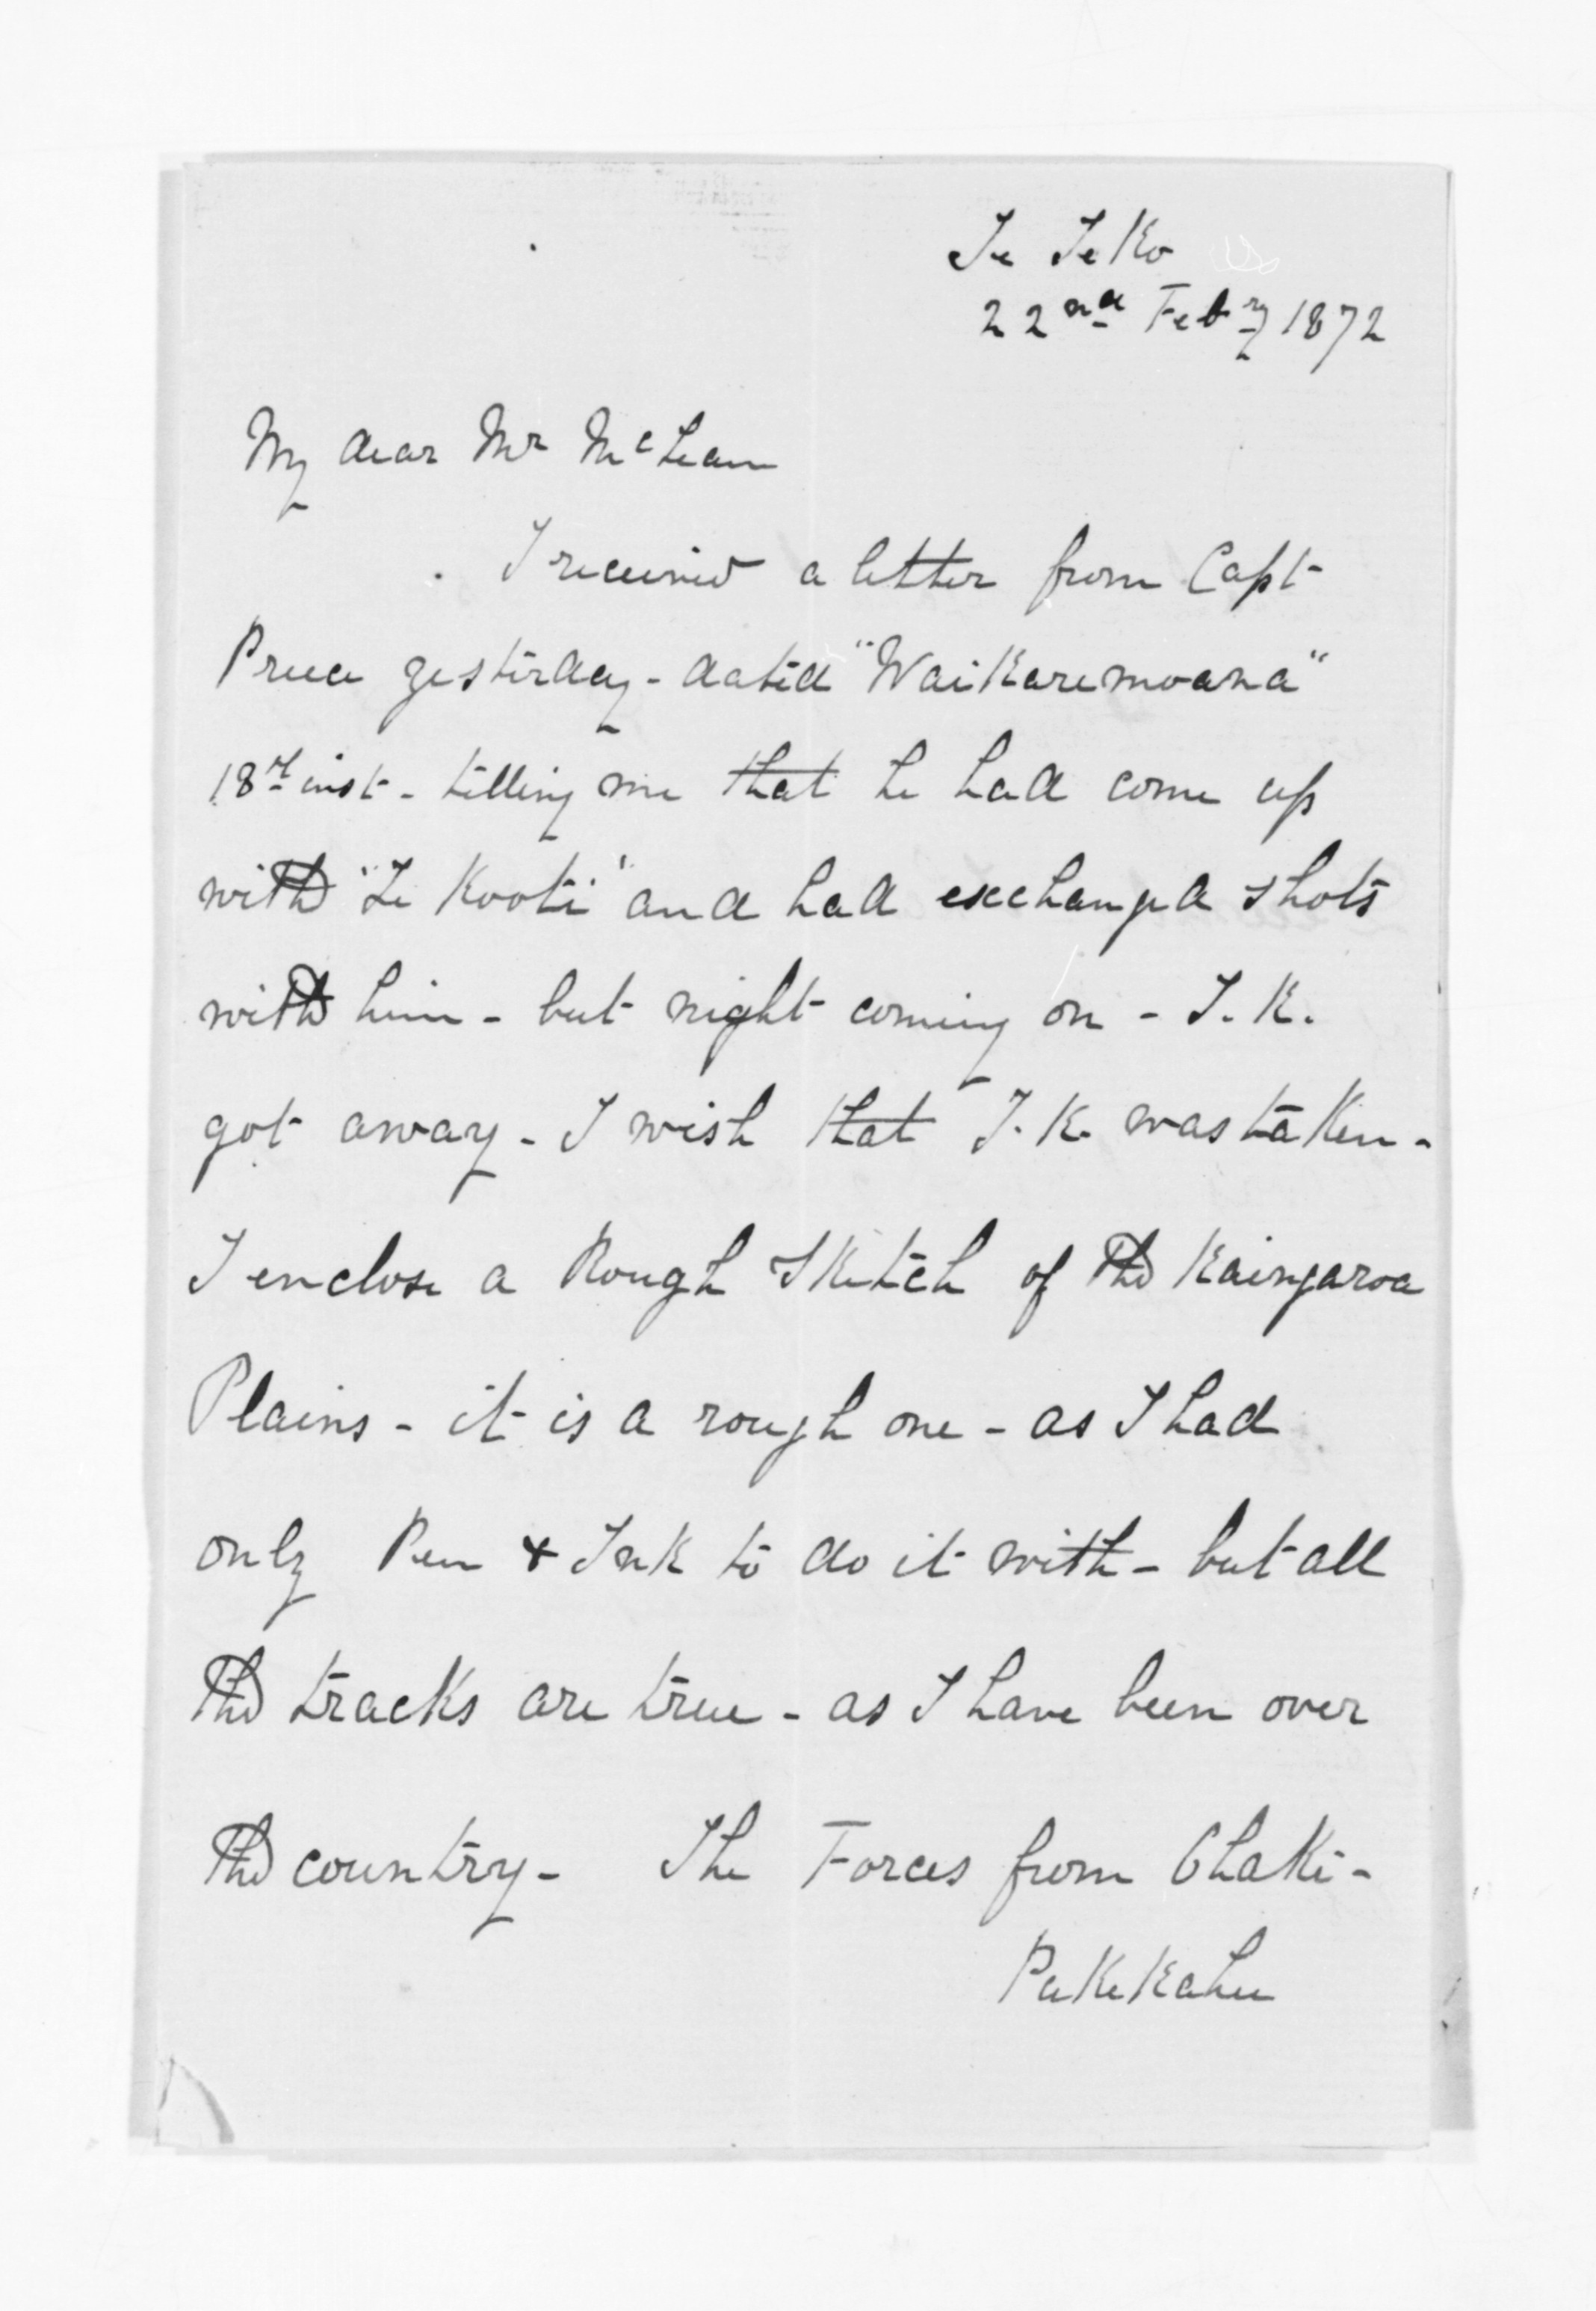 Te Teko
22nd Feby 1872
My dear Mr McLean
I received a letter from Capt
Preece yesterday - dated "Waikaremoana"
18th inst - telling me that he had come up
with "Te Kooti" and had exchanged shots
with him - but night coming on - T. K.
got away - I wish that T. K. was taken -
I enclose a Rough Sketch of the Kaingaroa
Plains - it is a rough one - as I had
only Pen & Ink to do it with - but all
the tracks are true - as I have been over
the country - The Forces from Ohaki -
Pakekahu